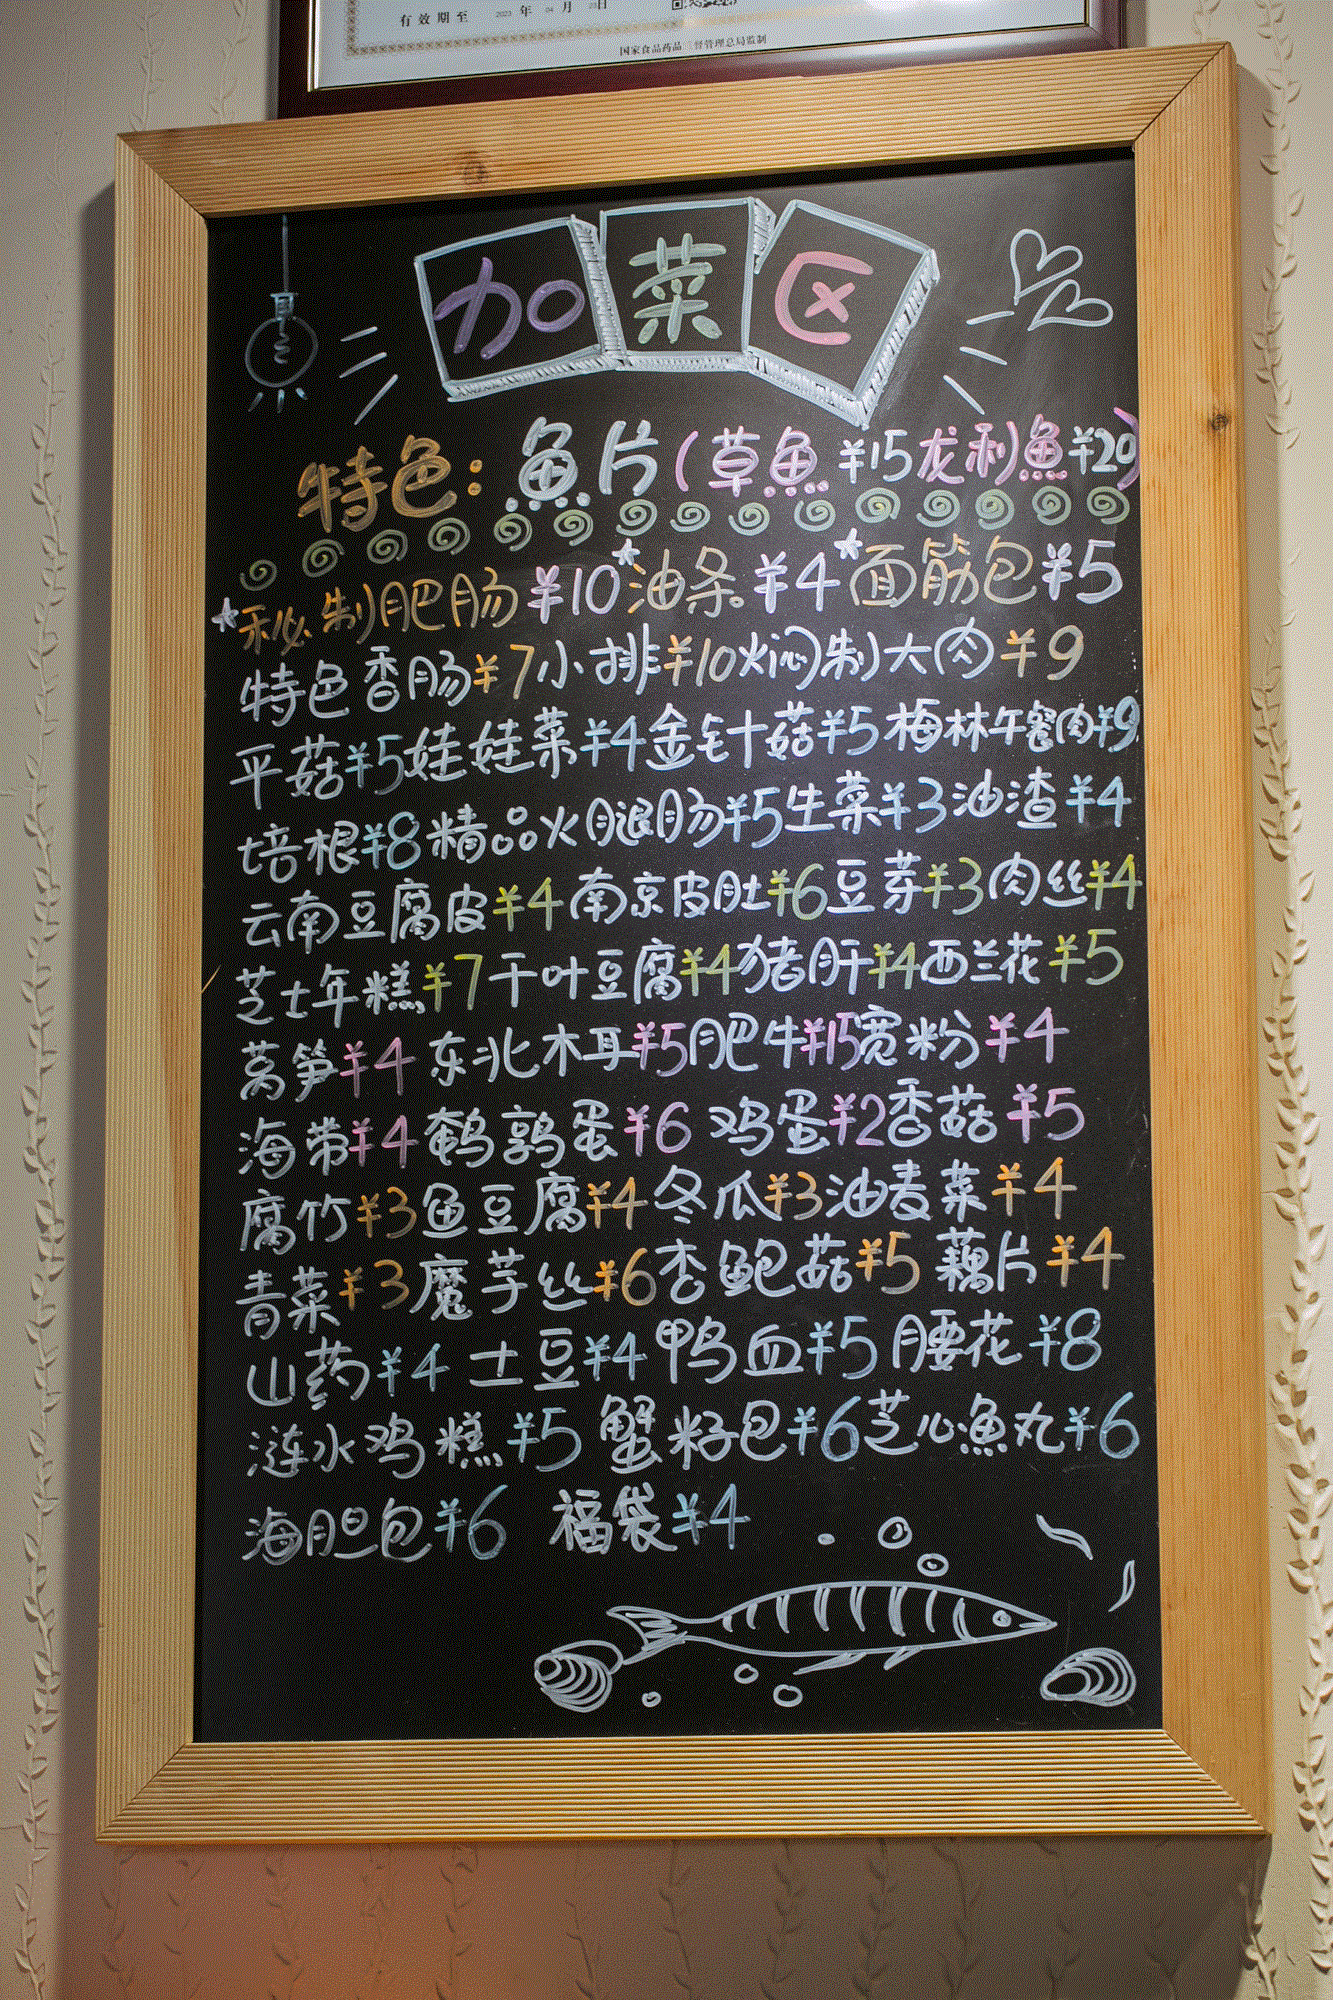 有效期至 2023 年 04 月 23日
国家食品药品 督管理总局监制
加菜区
特色：鱼片（草鱼¥15龙利鱼¥20）
*秘制肥肠¥10*油条¥4*面筋包¥5
特色香肠¥7小排¥10焖制大肉¥9
平菇¥5娃娃菜¥4金针菇¥5梅林午餐肉¥9
培根¥8精品火腿肠¥5生菜¥3油渣¥4
云南豆腐皮¥4南京皮肚¥6豆芽¥3肉丝¥4
芝士年糕¥7千叶豆腐¥4猪肝¥4西兰花¥5
莴笋¥4东北木耳¥5肥牛¥15宽粉¥4
海带¥4鹌鹑蛋¥6鸡蛋¥2香菇¥5
腐竹¥3鱼豆腐¥4冬瓜¥3油麦菜¥4
青菜¥3魔芋丝¥6杏鲍菇¥5藕片¥4
山药¥4土豆¥4鸭血¥5腰花¥8
涟水鸡糕¥5蟹籽包¥6芝心魚丸¥6
海胆包¥6福袋¥4